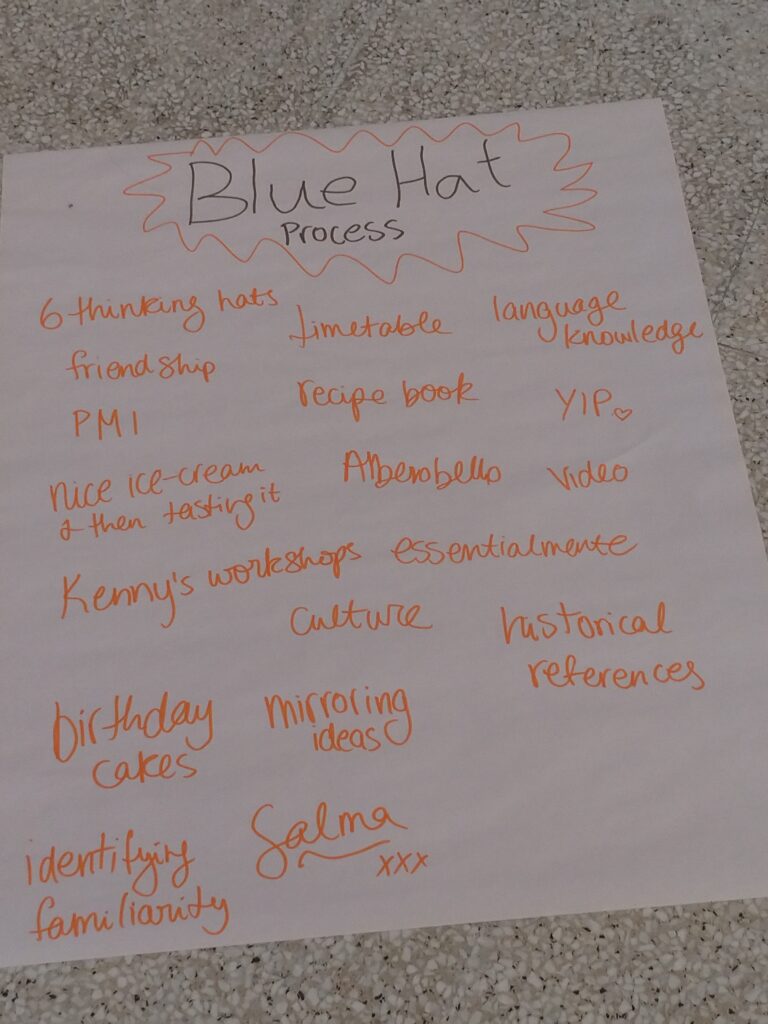 Blue Hat
process
6 thinking hats
timetable
language
knowledge
friendship
recipe book
YIP♡
PMI
nice ice-cream
& then tasting it
Alberobello
video
Kenny's workshops
essentialmente
culture
historical
references
birthday
cakes
mirroring
ideas
identifying
familiarity
Salma
xxx